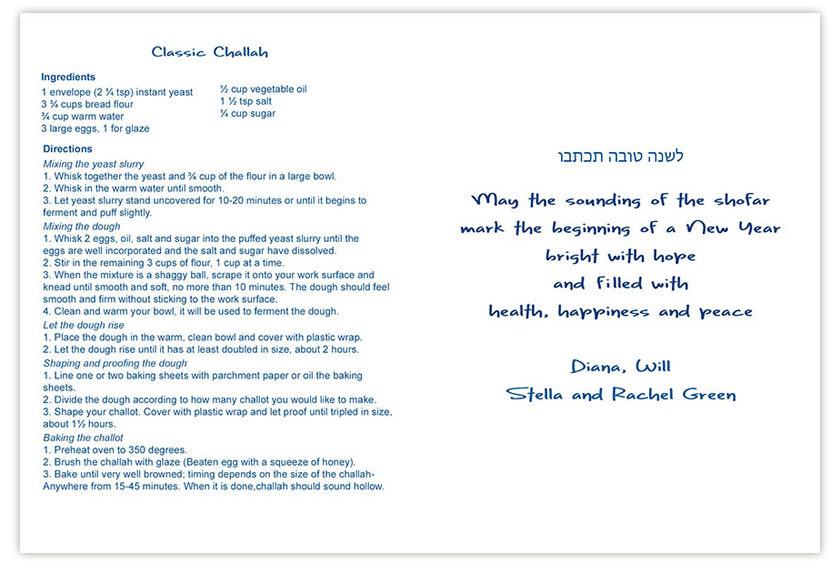 Classic Challah
Ingredients
1 envelope (2 ¼ tsp) instant yeast
3 ¾ cups bread flour
¾ cup warm water
3 large eggs, 1 for glaze
½ cup vegetable oil
1 ½ tsp salt
¼ cup sugar
Directions
Mixing the yeast slurry
1. Whisk together the yeast and ¾ cup of the flour in a large bowl.
2. Whisk in the warm water until smooth.
3. Let yeast slurry stand uncovered for 10-20 minutes or until it begins to
ferment and puff slightly.
Mixing the dough
1. Whisk 2 eggs, oil, salt and sugar into the puffed yeast slurry until the
eggs are well incorporated and the salt and sugar have dissolved.
2. Stir in the remaining 3 cups of flour, 1 cup at a time.
3. When the mixture is a shaggy ball, scrape it onto your work surface and
knead until smooth and soft, no more than 10 minutes. The dough should feel
smooth and firm without sticking to the work surface.
4. Clean and warm your bowl, it will be used to ferment the dough.
Let the dough rise
1. Place the dough in the warm, clean bowl and cover with plastic wrap.
2. Let the dough rise until it has at least doubled in size, about 2 hours.
Shaping and proofing the dough
1. Line one or two baking sheets with parchment paper or oil the baking
sheets.
2. Divide the dough according to how many challot you would like to make.
3. Shape your challot. Cover with plastic wrap and let proof until tripled in size,
about 1½ hours.
Baking the challot
1. Preheat oven to 350 degrees.
2. Brush the challah with glaze (Beaten egg with a squeeze of honey).
3. Bake until very well browned; timing depends on the size of the challah-
Anywhere from 15-45 minutes. When it is done,challah should sound hollow.
לשנה טובה תכתבו
May the sounding of the shofar
mark the beginning of a New Year
bright with hope
and filled with
health, happiness and peace
Diana, Will
Stella and Rachel Green